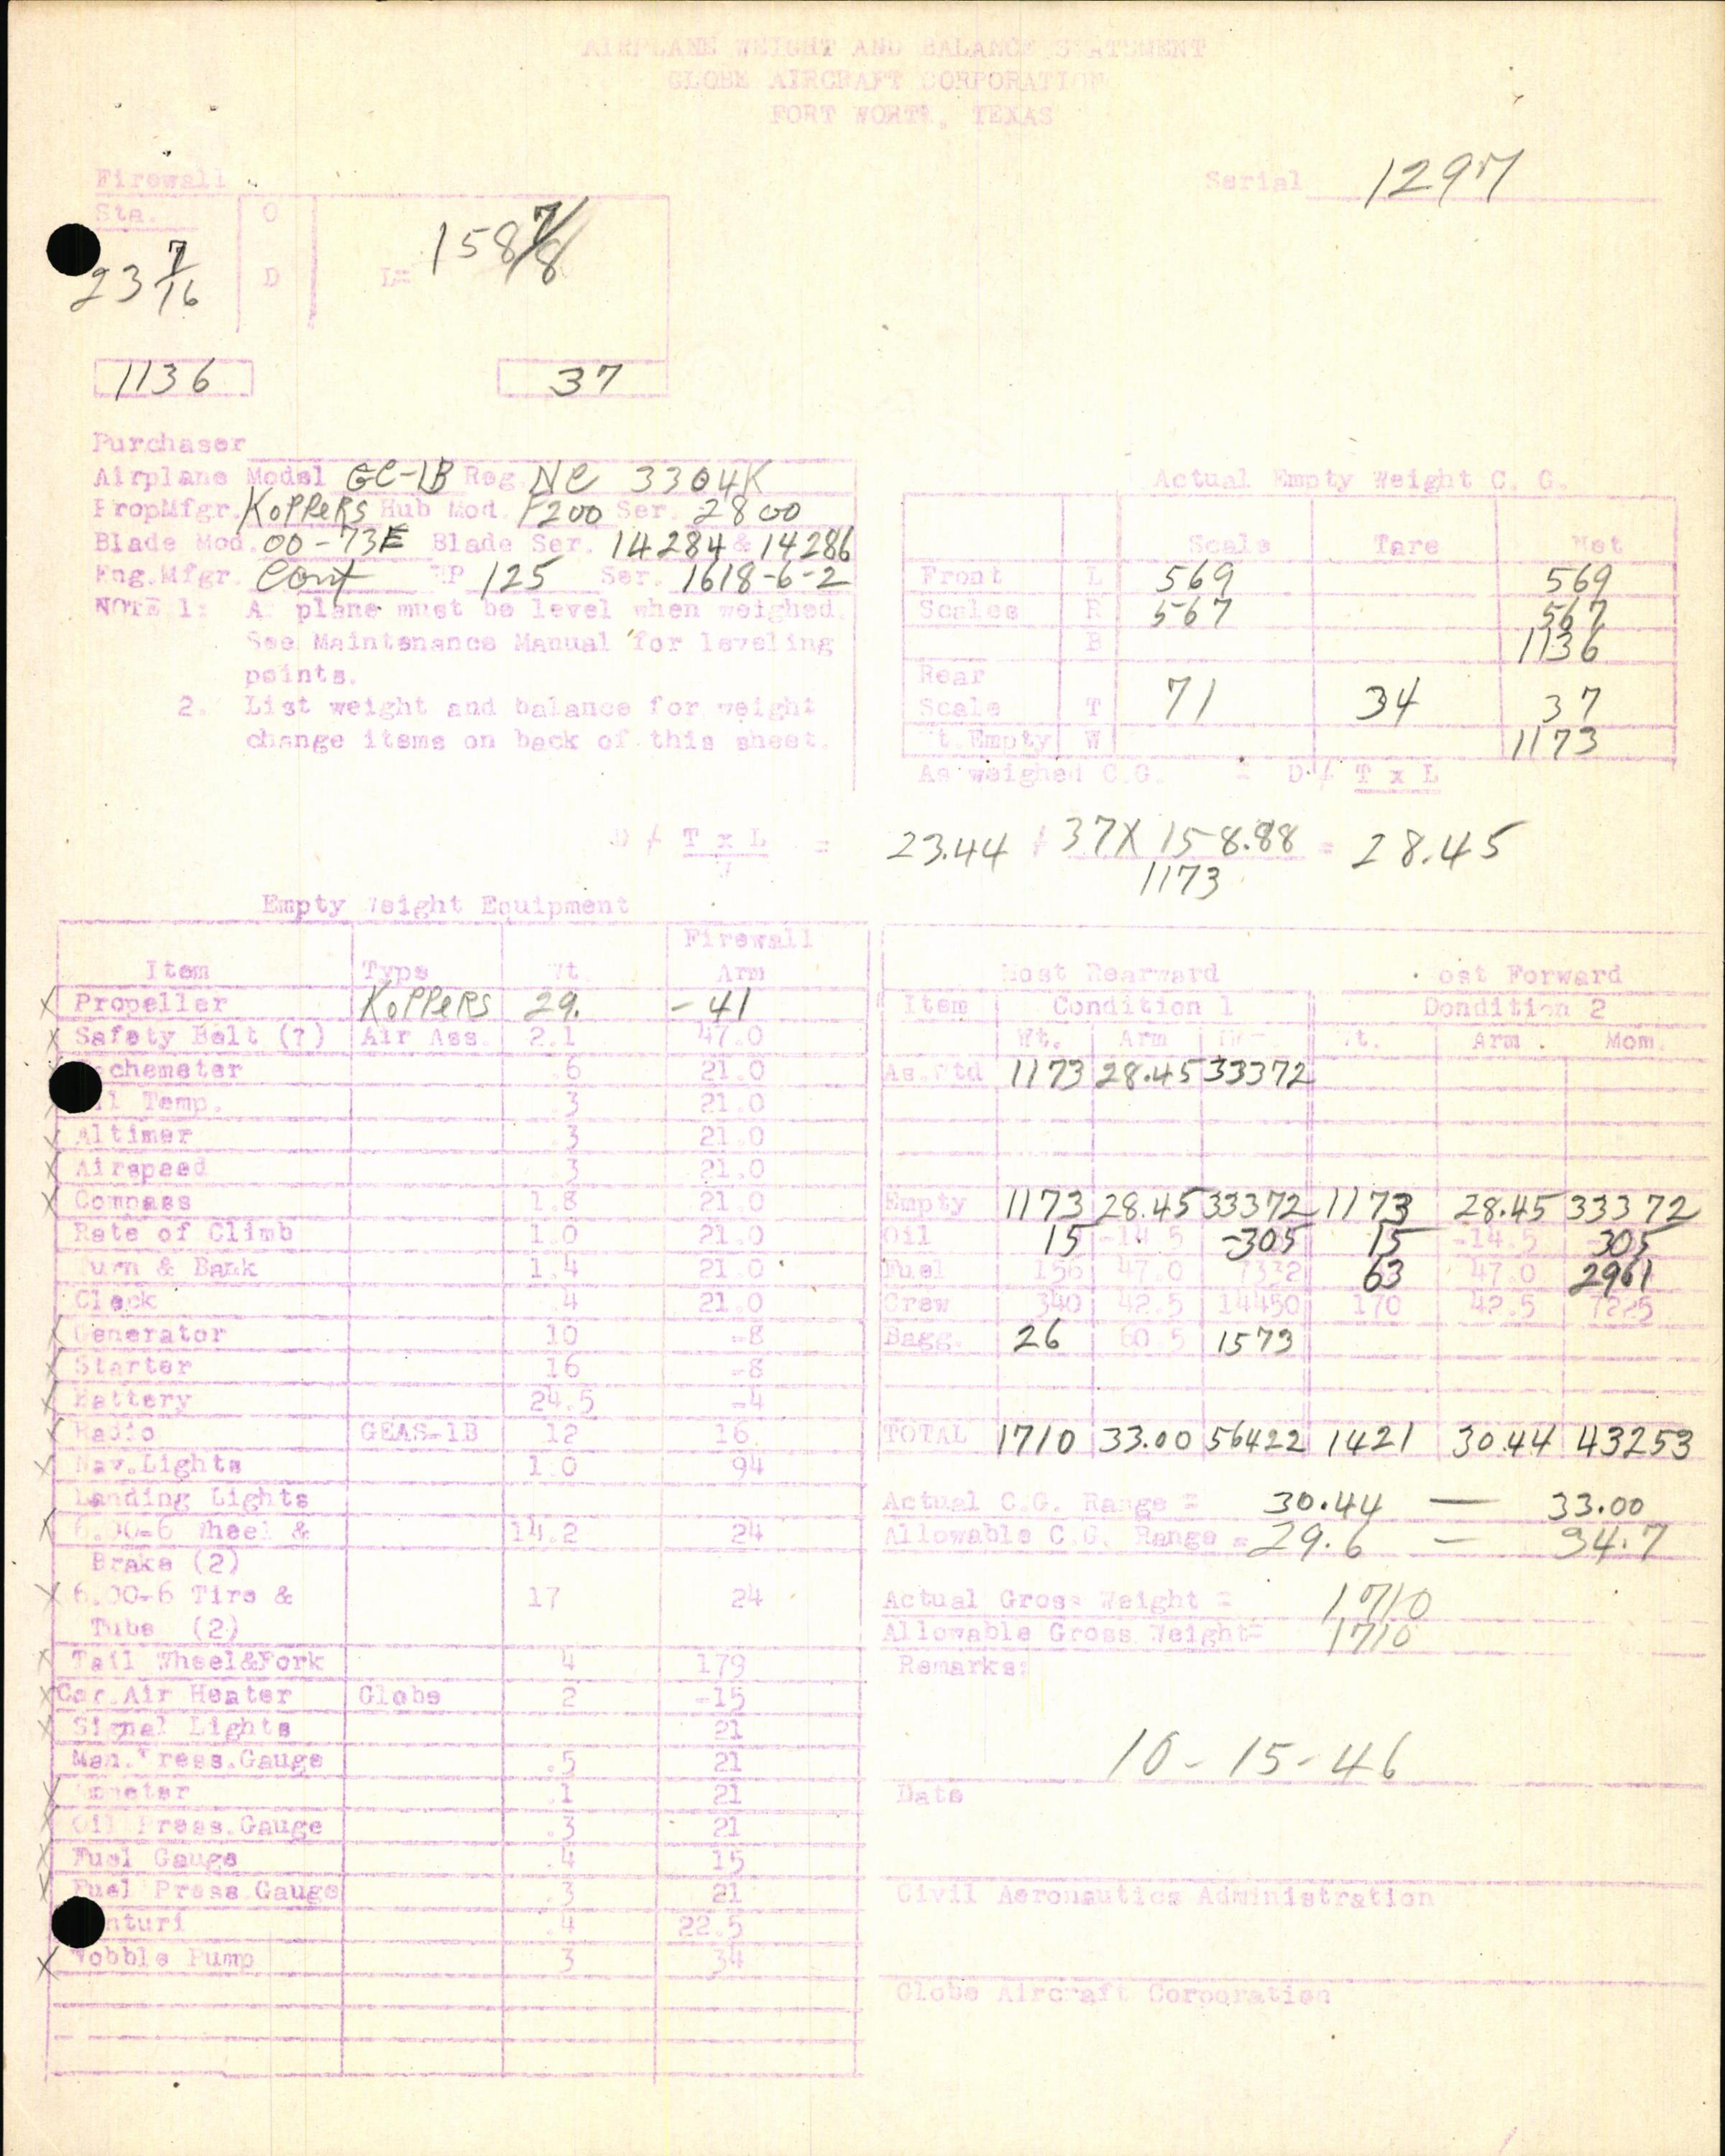 AIRPLANE WEIGHT AND BALANCE STATEMENT
GLOBE AIRCRAFT CORPORATION
FORT WORTH, TEXAS
Firewall
Serial 1297
Sta. O
23 7/16 D L= 158 7/8
1136 37
Purchaser
Airplane Model GC-1B Reg NC 3304K
PropMfgr. KOPPERS Hub Mod. F200 Ser. 2800
Blade Mod. 00-73E Blade Ser. 14284 & 14286
Eng.Mfgr. Cont HP 125 Ser. 1618-6-2
NOTE 1: A plane must be level when weighed.
See Maintenance Manual for leveling
points.
2. List weight and balance for weight
change items on back of this sheet.
Actual Empty Weight C. G.
Scale Tare Net
Front L 569 569
Scales R 567 567
B 1136
Rear
Scale T 71 34 37
Wt.Empty W 1173
As weighed C.G. = D / T x L
D / T x L = 23.44 / 37 X 158.88 = 28.45
W 1173
Empty Weight Equipment
Item Type Wt. Firewall Arm
X Propeller KOPPERS 29. -41
X Safety Belt (?) Air Ass. 2.1 47.0
chemeter .6 21.0
l Temp. .3 21.0
X Altimer .3 21.0
X Airspeed .3 21.0
X Compass 1.8 21.0
Rate of Climb 1.0 21.0
Turn & Bank 1.4 21.0
Clock .4 21.0
X Generator 10 -8
X Starter 16 -8
X Battery 24.5 -4
X Radio GEAS-1B 12 16
X Nav.Lights 1.0 94
Landing Lights
X 6.00-6 Wheel & 14.2 24
Brake (2)
X 6.00-6 Tire & 17 24
Tube (2)
X Tail Wheel&Fork 4 179
X Car.Air Heater Globe 2 -15
X Signal Lights 21
Man.Press.Gauge .5 21
X Ammeter .1 21
X Oil Press.Gauge .3 21
X Fuel Gauge .4 15
X Fuel Press.Gauge .3 21
nturi .4 22.5
X Wobble Pump 3 34
Most Rearward Most Forward
Item Condition 1 Dondition 2
Wt. Arm Mom. Wt. Arm Mom.
As.Wtd 1173 28.45 33372
Empty 1173 28.45 33372 1173 28.45 33372
Oil 15 -14.5 -305 15 -14.5 305
Fuel 156 47.0 7332 63 47.0 2961
Crew 340 42.5 14450 170 42.5 7225
Bagg. 26 60.5 1573
TOTAL 1710 33.00 56422 1421 30.44 43253
Actual C.G. Range = 30.44 — 33.00
Allowable C.G. Range = 29.6 — 34.7
Actual Gross Weight = 1710
Allowable Gross Weight= 1710
Remarks:
10-15-46
Date
Civil Aeronautics Administration
Globe Aircraft Corporation